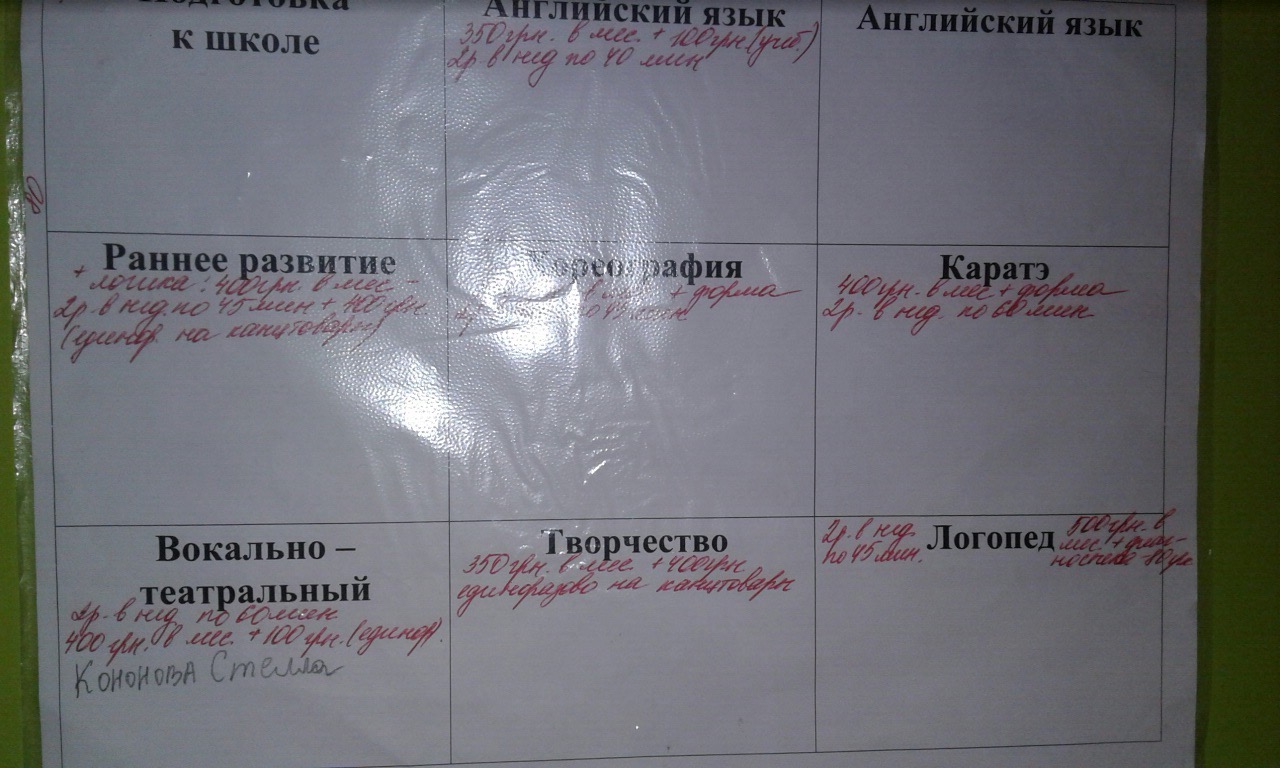 Подготовка
к школе
Английский язык
350грн. в мес. + 100грн. (учеб)
2р в нед по 40 мин
Английский язык
Раннее развитие
+ логика: 400грн. в мес -
2р. в нед. по 45 мин + 400грн
(единор. на канцтовары)
Хореография
в мес + форма
по 45 мин
Каратэ
400грн. в мес + форма
2р. в нед. по 60 мин
Вокально –
театральный
2р. в нед по 60мин
400 грн. в мес. + 100 грн. (единор).
Кононова Стелла
Творчество
350 грн. в мес + 400грн
единоразово на канцтовары
2р. в нед.
по 45 мин.
Логопед
500грн. в
мес. + диаг-
ностика - 80грн